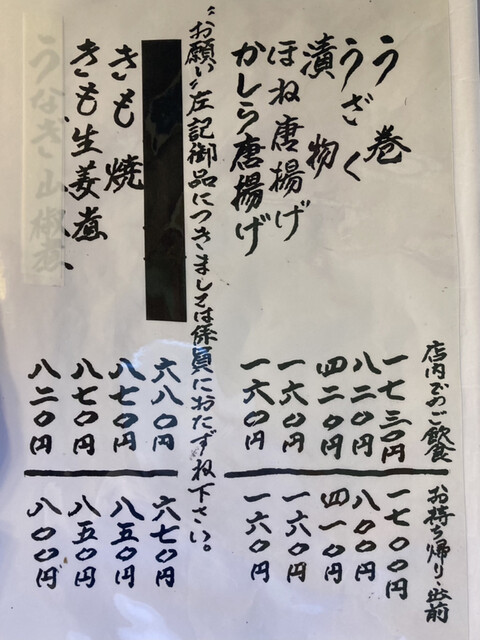 店内でのご飲食 お持ち帰り・出前
う巻 一七三〇円 一七〇〇円
うざく 八二〇円 八〇〇円
漬物 四二〇円 四一〇円
ほね唐揚げ 一六〇円 一六〇円
かしら唐揚げ 一六〇円 一六〇円
"お願い"左記御品につきましては係員におたずね下さい。
六八〇円 六七〇円
きも焼 八七〇円 八五〇円
きも生姜煮 八七〇円 八五〇円
うなぎ山椒煮 八二〇円 八〇〇円